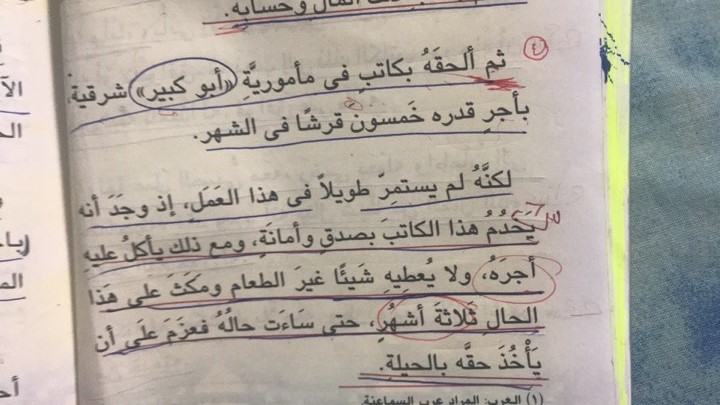 المال وحسابه.
٤ ثم ألحقَهُ بكاتبٍ فى مأموريَّةِ «أبو كبير» شرقية،
بأجرٍ قدره خَمسونَ قرشًا فى الشهر.
لكنَّهُ لم يستمرّ طويلاً فى هذا العَمَلِ، إذ وجَدَ أنه
يَخدُمُ هذا الكاتبَ بصدقٍ وأمانَةٍ، ومع ذلك يأكلُ عليهِ
أجرهُ، ولا يُعطِيهِ شَيئًا غيرَ الطعام ومكَثَ على هَذا
الحالِ ثَلاثةَ أشهُرٍ، حتى سَاءَت حالُهُ فعزَمَ عَلَى أن
يَأْخُذَ حقَّه بالحيلةِ.
(١) العرب: المراد عرب السماعنة.